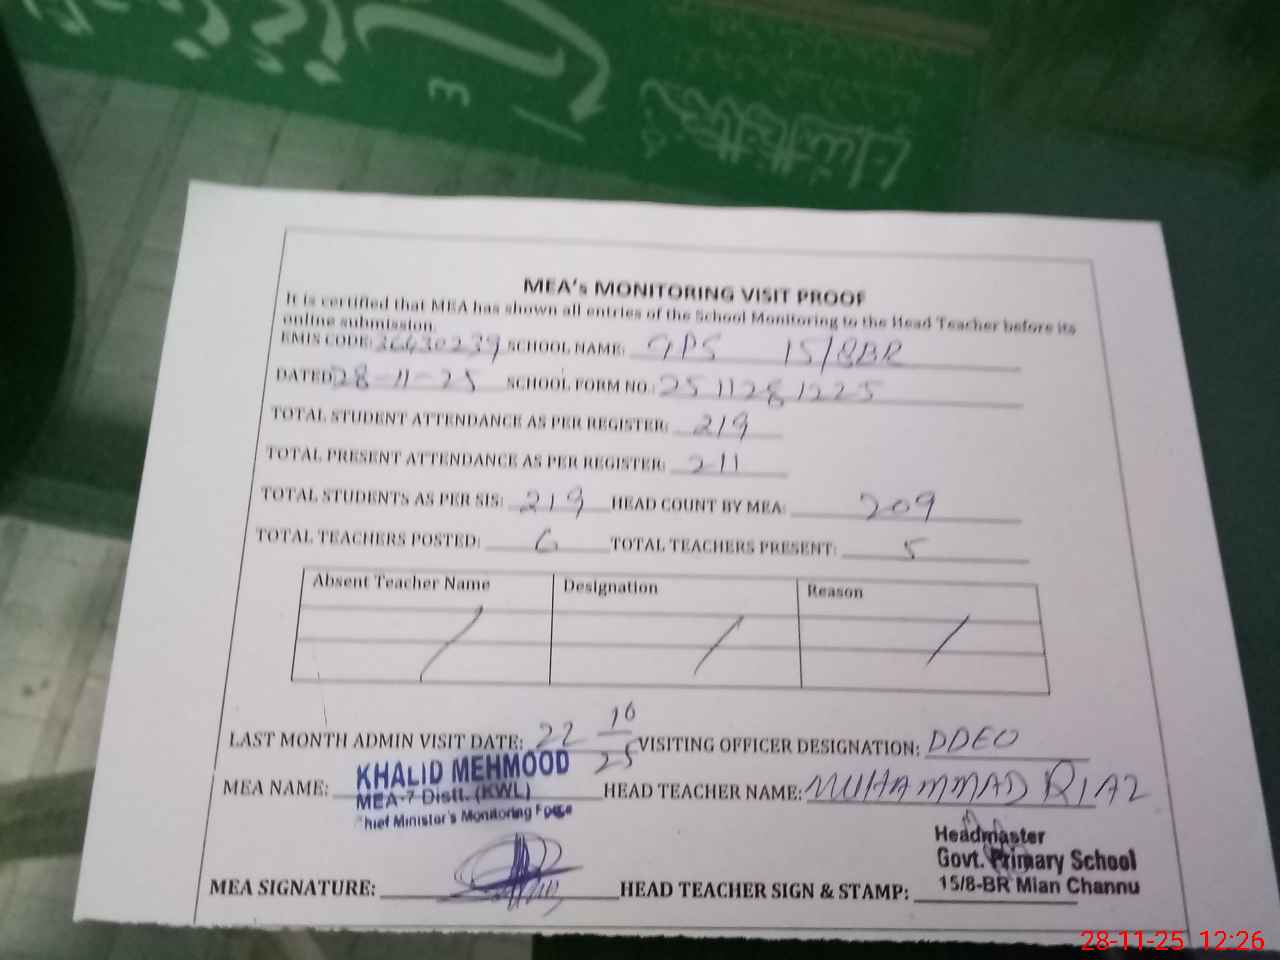 MEA's MONITORING VISIT PROOF
It is certified that MEA has shown all entries of the School Monitoring to the Head Teacher before its
online submission.
EMIS CODE: 36430239 SCHOOL NAME: GPS 15/8BR
DATED 28-11-25 SCHOOL FORM NO.: 2511281225
TOTAL STUDENT ATTENDANCE AS PER REGISTER: 219
TOTAL PRESENT ATTENDANCE AS PER REGISTER: 211
TOTAL STUDENTS AS PER SIS: 219 HEAD COUNT BY MEA: 209
TOTAL TEACHERS POSTED: 6 TOTAL TEACHERS PRESENT: 5
Absent Teacher Name Designation Reason
/ / /
LAST MONTH ADMIN VISIT DATE: 22 10/25 VISITING OFFICER DESIGNATION: DDEO
MEA NAME: KHALID MEHMOOD HEAD TEACHER NAME: MUHAMMAD RIAZ
MEA-7 Distt. (KWL)
Chief Minister's Monitoring Force
Headmaster
Govt. Primary School
15/8-BR Mian Channu
MEA SIGNATURE: HEAD TEACHER SIGN & STAMP:
28-11-25 12:26